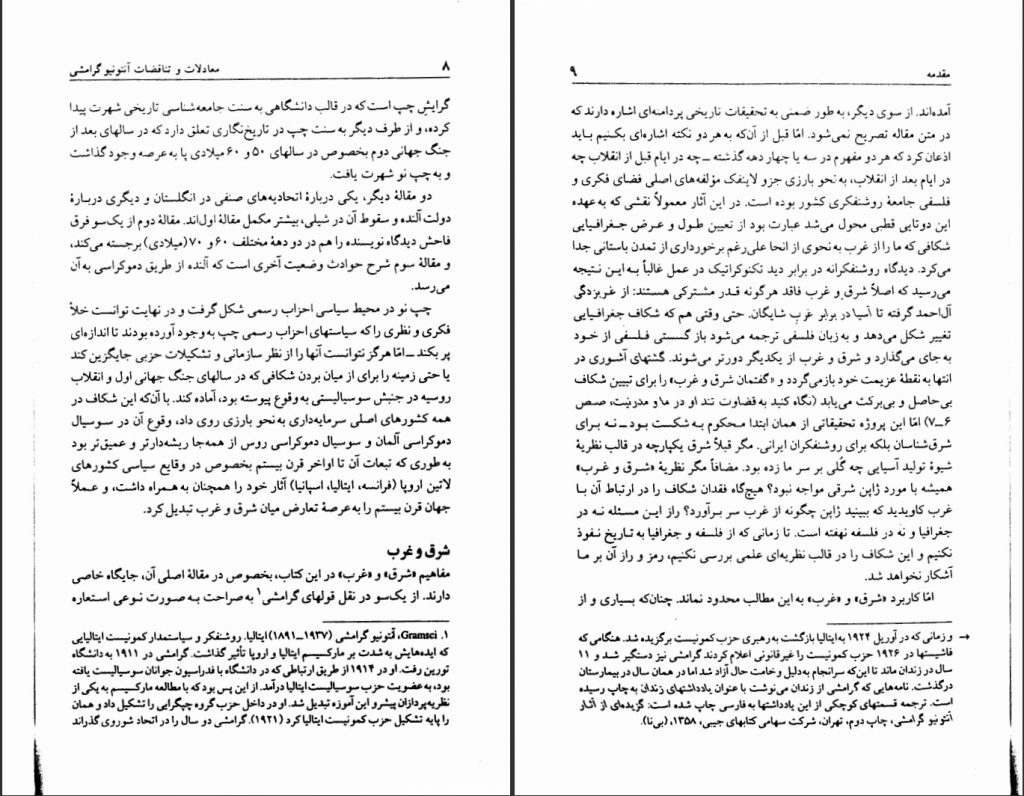 ۸ معادلات و تناقضات آنتونیو گرامشی
گرایش چپ است که در قالب دانشگاهی به سنت جامعه‌شناسی تاریخی شهرت پیدا
کرده، و از طرف دیگر به سنت چپ در تاریخ‌نگاری تعلق دارد که در سالهای بعد از
جنگ جهانی دوم بخصوص در سالهای ۵۰ و ۶۰ میلادی پا به عرصه وجود گذاشت
و به چپ نو شهرت یافت.
دو مقالهٔ دیگر، یکی دربارهٔ اتحادیه‌های صنفی در انگلستان و دیگری دربارهٔ
دولت آلنده و سقوط آن در شیلی، بیشتر مکمل مقالهٔ اول‌اند. مقالهٔ دوم از یک‌سو فرق
فاحش دیدگاه نویسنده را هم در دو دههٔ مختلف ۶۰ و ۷۰ (میلادی) برجسته می‌کند،
و مقالهٔ سوم شرح حوادث وضعیت آخری است که آلنده از طریق دموکراسی به آن
می‌رسد.
چپ نو در محیط سیاسی احزاب رسمی شکل گرفت و در نهایت توانست خلأ
فکری و نظری را که سیاستهای احزاب رسمی چپ به وجود آورده بودند تا اندازه‌ای
پر بکند ــ امّا هرگز نتوانست آنها را از نظر سازمانی و تشکیلات حزبی جایگزین کند
یا حتی زمینه را برای از میان بردن شکافی که در سالهای جنگ جهانی اول و انقلاب
روسیه در جنبش سوسیالیستی به وقوع پیوسته بود، آماده کند. با آن‌که این شکاف در
همه کشورهای اصلی سرمایه‌داری به نحو بارزی روی داد، وقوع آن در سوسیال
دموکراسی آلمان و سوسیال دموکراسی روس از همه‌جا ریشه‌دارتر و عمیق‌تر بود
به طوری که تبعات آن تا اواخر قرن بیستم بخصوص در وقایع سیاسی کشورهای
لاتین اروپا (فرانسه، ایتالیا، اسپانیا) آثار خود را همچنان به همراه داشت، و عملاً
جهان قرن بیستم را به عرصهٔ تعارض میان شرق و غرب تبدیل کرد.
شرق و غرب
مفاهیم «شرق» و «غرب» در این کتاب، بخصوص در مقالهٔ اصلی آن، جایگاه خاصی
دارند. از یک‌سو در نقل قولهای گرامشی۱ به صراحت به صورت نوعی استعاره
۱. Gramsci، آنتونیو گرامشی (۱۹۳۷ــ۱۸۹۱) ایتالیا. روشنفکر و سیاستمدار کمونیست ایتالیایی
که ایده‌هایش به شدت بر مارکسیسم ایتالیا و اروپا تأثیر گذاشت. گرامشی در ۱۹۱۱ به دانشگاه
تورین رفت. او در ۱۹۱۴ از طریق ارتباطی که در دانشگاه با فدراسیون جوانان سوسیالیست یافته
بود، به عضویت حزب سوسیالیست ایتالیا درآمد. از این پس بود که با مطالعه مارکسیسم به یکی از
نظریه‌پردازان پیشرو این آموزه تبدیل شد. او در داخل حزب گروه چپگرایی را تشکیل داد و همان
را پایه تشکیل حزب کمونیست ایتالیا کرد (۱۹۲۱). گرامشی دو سال را در اتحاد شوروی گذراند
مقدمه ۹
آمده‌اند. از سوی دیگر، به طور ضمنی به تحقیقات تاریخی پردامنه‌ای اشاره دارند که
در متن مقاله تصریح نمی‌شود. امّا قبل از آن‌که به هر دو نکته اشاره‌ای بکنیم باید
اذعان کرد که هر دو مفهوم در سه یا چهار دهه گذشته ــ چه در ایام قبل از انقلاب چه
در ایام بعد از انقلاب، به نحو بارزی جزو لاینفک مؤلفه‌های اصلی فضای فکری و
فلسفی جامعهٔ روشنفکری کشور بوده است. در این آثار معمولاً نقشی که به عهده
این دوتایی قطبی محول می‌شد عبارت بود از تعیین طول و عرض جغرافیایی
شکافی که ما را از غرب به نحوی از انحا علی‌رغم برخورداری از تمدن باستانی جدا
می‌کرد. دیدگاه روشنفکرانه در برابر دید تکنوکراتیک در عمل غالباً به این نتیجه
می‌رسید که اصلاً شرق و غرب فاقد هرگونه قدر مشترکی هستند: از غربزدگی
آل‌احمد گرفته تا آسیا در برابر غرب شایگان. حتی وقتی هم که شکاف جغرافیایی
تغییر شکل می‌دهد و به زبان فلسفی ترجمه می‌شود باز گسستی فلسفی از خود
به جای می‌گذارد و شرق و غرب از یکدیگر دورتر می‌شوند. گشتهای آشوری در
انتها به نقطهٔ عزیمت خود بازمی‌گردد و «گفتمان شرق و غرب» را برای تبیین شکاف
بی‌حاصل و بی‌برکت می‌یابد (نگاه کنید به قضاوت تند او در ما و مدرنیت، صص
۶ــ۷) امّا این پروژه تحقیقاتی از همان ابتدا محکوم به شکست بود ــ نه برای
شرق‌شناسان بلکه برای روشنفکران ایرانی. مگر قبلاً شرق یکپارچه در قالب نظریهٔ
شیوهٔ تولید آسیایی چه گُلی بر سر ما زده بود. مضافاً مگر نظریهٔ «شرق و غرب»
همیشه با مورد ژاپن شرقی مواجه نبود؟ هیچ‌گاه فقدان شکاف را در ارتباط آن با
غرب کاویدید که ببینید ژاپن چگونه از غرب سر برآورد؟ راز این مسئله نه در
جغرافیا و نه در فلسفه نهفته است. تا زمانی که از فلسفه و جغرافیا به تاریخ نفوذ
نکنیم و این شکاف را در قالب نظریه‌ای علمی بررسی نکنیم، رمز و راز آن بر ما
آشکار نخواهد شد.
امّا کاربرد «شرق» و «غرب» به این مطالب محدود نماند. چنان‌که بسیاری و از
→ و زمانی که در آوریل ۱۹۲۴ به ایتالیا بازگشت به رهبری حزب کمونیست برگزیده شد. هنگامی که
فاشیستها در ۱۹۲۶ حزب کمونیست را غیرقانونی اعلام کردند گرامشی نیز دستگیر شد و ۱۱
سال در زندان ماند تا این‌که سرانجام به دلیل وخامت حال آزاد شد اما در همان سال در بیمارستان
درگذشت. نامه‌هایی که گرامشی از زندان می‌نوشت با عنوان یادداشتهای زندان به چاپ رسیده
است. ترجمه قسمتهای کوچکی از این یادداشتها به فارسی چاپ شده است: گزیده‌ای از آثار
آنتونیو گرامشی، چاپ دوم، تهران، شرکت سهامی کتابهای جیبی، ۱۳۵۸، (بی‌نا).